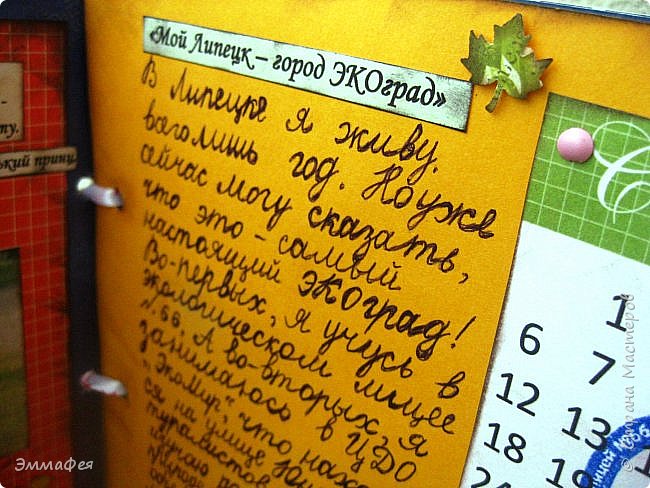 ту.
ький принц.
«Мой Липецк – город ЭКОград»
В Липецке я живу.
всего лишь год. Но уже
сейчас могу сказать,
что это - самый
настоящий ЭКОград!
Во-первых, я учусь в
экологическом лицее
№66. А во-вторых, я
занимаюсь в ЦДО
"ЭкоМир", что нахо
ся на улице
туристов
1
6 7
12 13
18 19
24
лицей №66
ЭммаФея
© Страна Мастеров